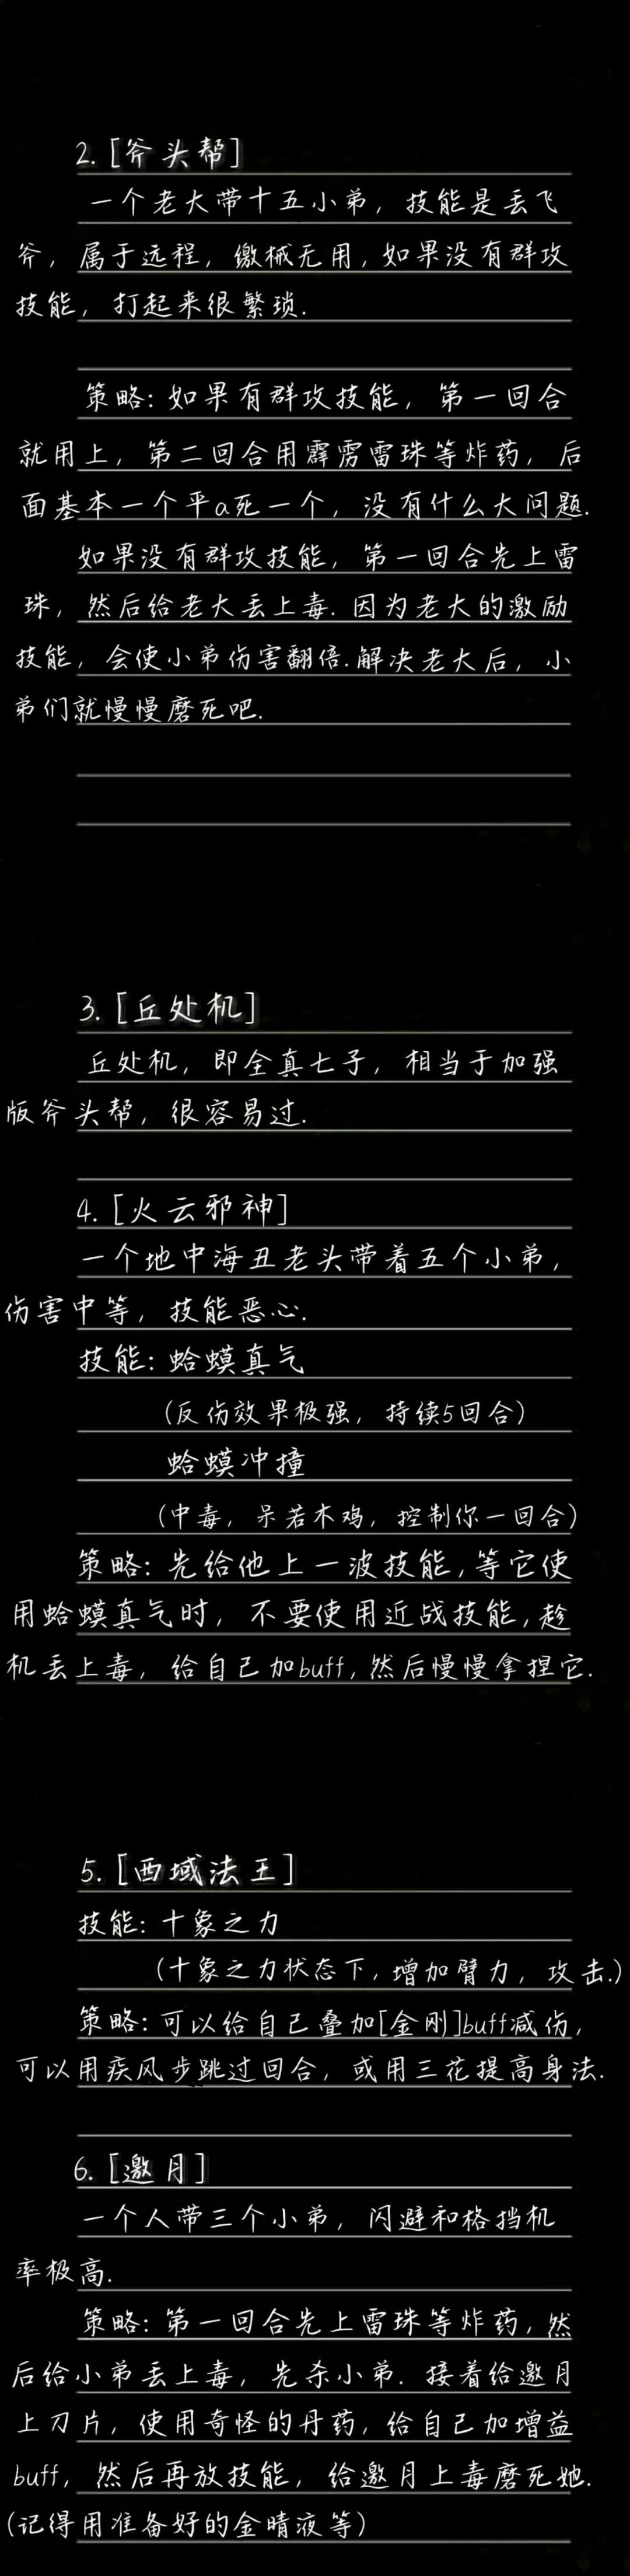 2. [斧头帮]
一个老大带十五小弟, 技能是丢飞
斧, 属于远程, 缴械无用, 如果没有群攻
技能, 打起来很繁琐.
策略: 如果有群攻技能, 第一回合
就用上, 第二回合用霹雳雷珠等炸药, 后
面基本一个平a死一个, 没有什么大问题.
如果没有群攻技能, 第一回合先上雷
珠, 然后给老大丢上毒. 因为老大的激励
技能, 会使小弟伤害翻倍. 解决老大后, 小
弟们就慢慢磨死吧.
3. [丘处机]
丘处机, 即全真七子, 相当于加强
版斧头帮, 很容易过.
4. [火云邪神]
一个地中海丑老头带着五个小弟,
伤害中等, 技能恶心.
技能: 蛤蟆真气
(反伤效果极强, 持续5回合)
蛤蟆冲撞
(中毒, 呆若木鸡, 控制你一回合)
策略: 先给他上一波技能, 等它使
用蛤蟆真气时, 不要使用近战技能, 趁
机丢上毒, 给自己加buff, 然后慢慢拿捏它.
5. [西域法王]
技能: 十象之力
(十象之力状态下, 增加臂力, 攻击.)
策略: 可以给自己叠加[金刚]buff减伤,
可以用疾风步跳过回合, 或用三花提高身法.
6. [邀月]
一个人带三个小弟, 闪避和格挡机
率极高.
策略: 第一回合先上雷珠等炸药, 然
后给小弟丢上毒, 先杀小弟. 接着给邀月
上刀片, 使用奇怪的丹药, 给自己加增益
buff, 然后再放技能, 给邀月上毒磨死她.
(记得用准备好的金晴液等)